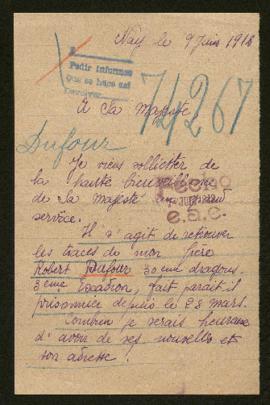 Nay le 9 Juin 1918
Pedir informes
que se hace así
74267
A Sa Majesté
Dufour
Je viens solliciter de
la haute bienveillance
de Sa Majesté un
service.
Il s'agit de retrouver
les traces de mon frère
Robert Dufour 30eme dragons
3eme Escadron, fait parait il
prisonnier depuis le 23 mars.
Combien je serais heureuse
d'avoir de ses nouvelles et
son adresse!